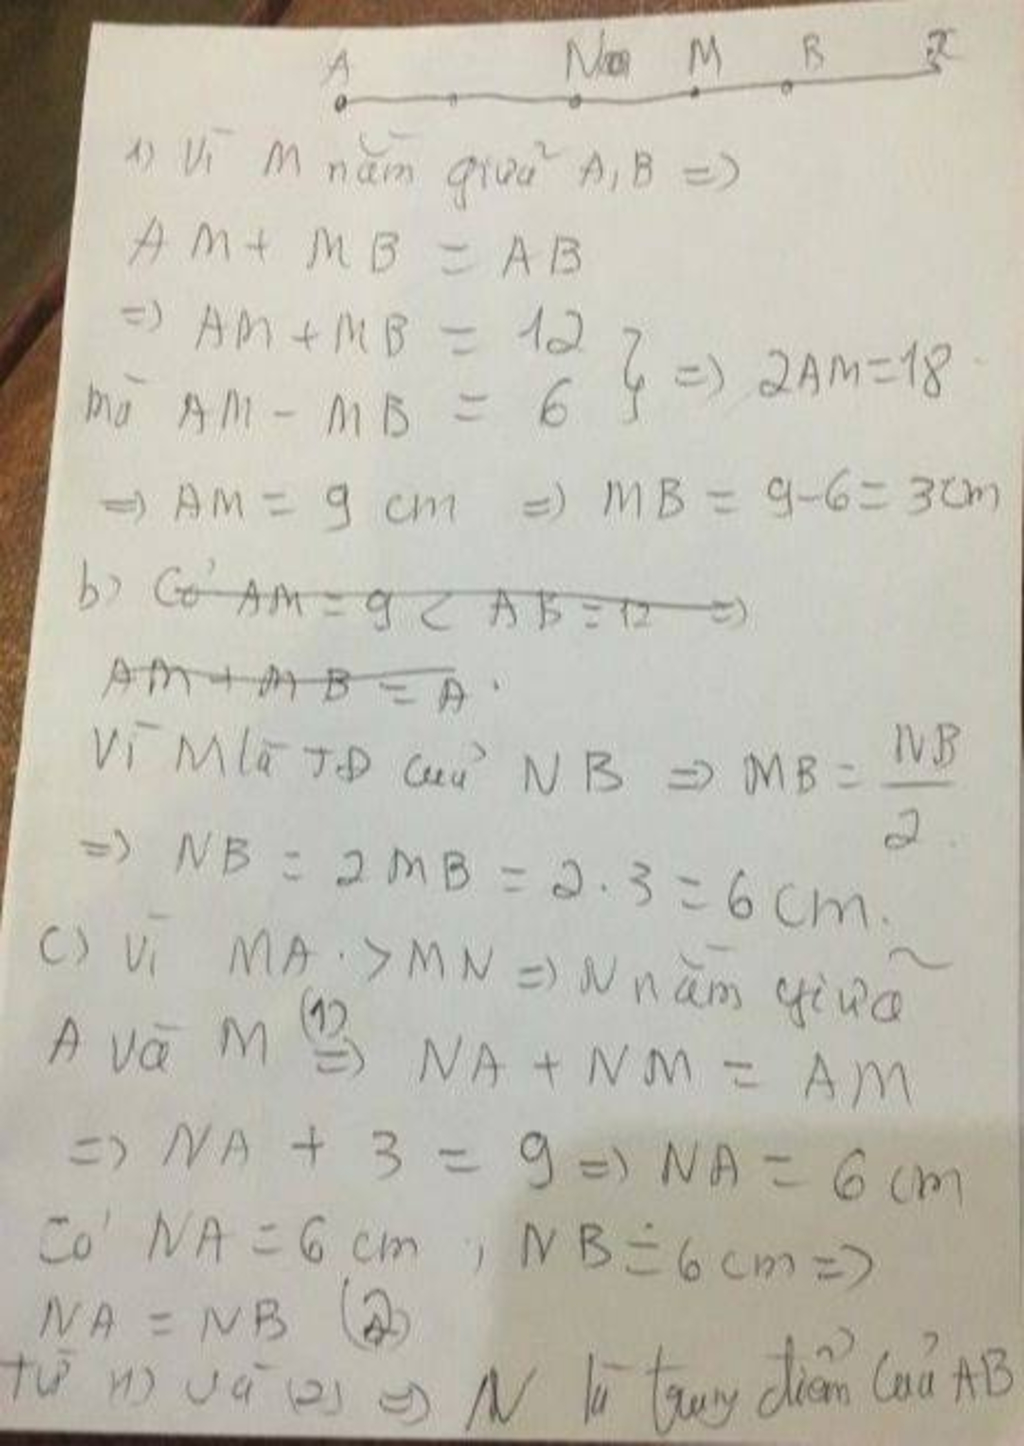 A N M B x
1) Vì M nằm giữa A, B =>
AM + MB = AB
=> AM + MB = 12
mà AM - MB = 6 } => 2AM = 18
=> AM = 9 cm => MB = 9-6 = 3cm
b) Có AM = 9 < AB = 12 =>
AM + MB = A.
Vì M là TĐ của NB => MB = NB/2
=> NB = 2MB = 2.3 = 6 cm.
c) Vì MA > MN => N nằm giữa
A và M (1) => NA + NM = AM
=> NA + 3 = 9 => NA = 6 cm
Có NA = 6 cm, NB = 6 cm =>
NA = NB (2)
Từ (1) và (2) => N là trung điểm của AB